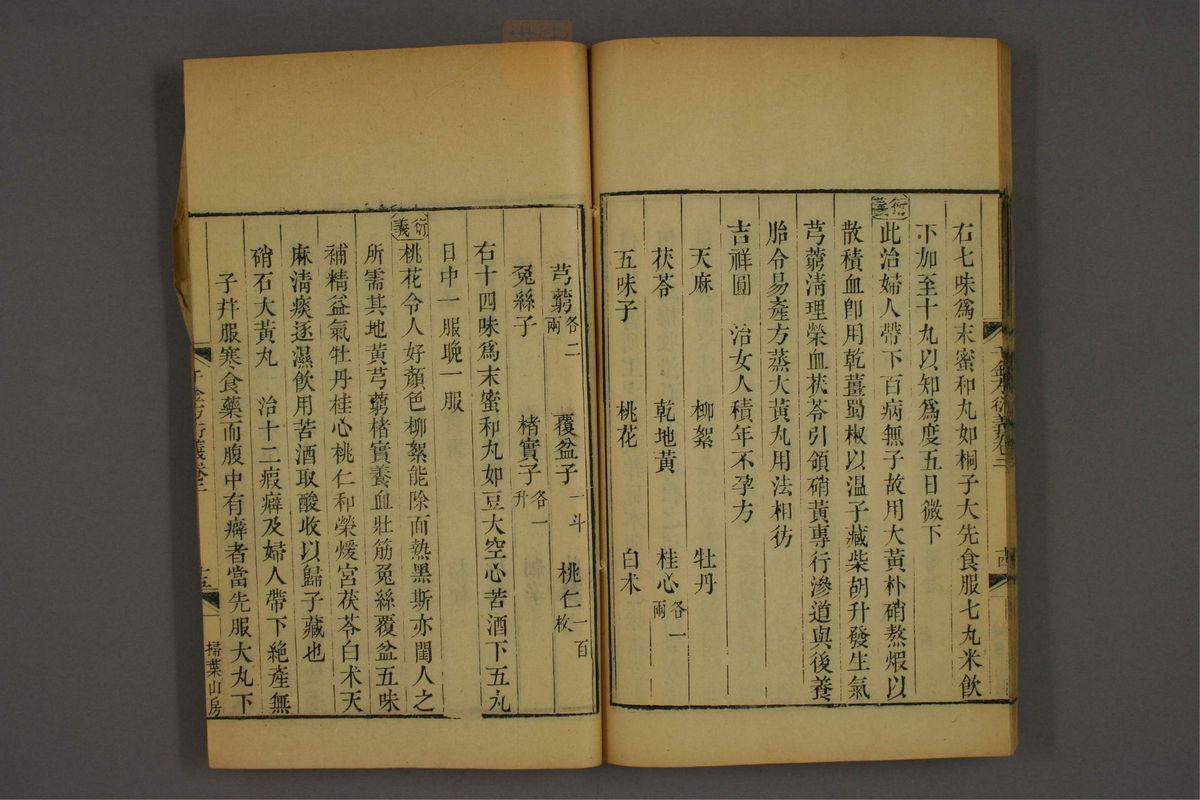 右七味爲末蜜和丸如桐子大先食服七丸米飲
下加至十丸以知爲度五日微下
衍義
此治婦人帶下百病無子故用大黃朴硝熬煆以
散積血卽用乾薑蜀椒以温子藏柴胡升發生氣
芎藭清理榮血茯苓引領硝黃專行滲道與後養
胎令易產方蒸大黃丸用法相彷
吉祥圓 治女人積年不孕方
天麻 柳絮 牡丹
茯苓 乾地黃 桂心各一兩
五味子 桃花 白朮
千金方衍義卷二
十四
芎藭各二兩 覆盆子一斗 桃仁一百枚
兔絲子 楮實子各一升
右十四味爲末蜜和丸如豆大空心苦酒下五丸
日中一服晚一服
衍義
桃花令人好顏色柳絮能除面熱黑斯亦閨人之
所需其地黃芎藭楮實養血壯筋兔絲覆盆五味
補精益氣牡丹桂心桃仁和榮煖宮茯苓白朮天
麻淸痰逐濕飲用苦酒取酸收以歸子藏也
硝石大黃丸 治十二瘕癖及婦人帶下絶產無
子幷服寒食藥而腹中有癖者當先服大丸下
千金方衍義卷二
十五
掃葉山房